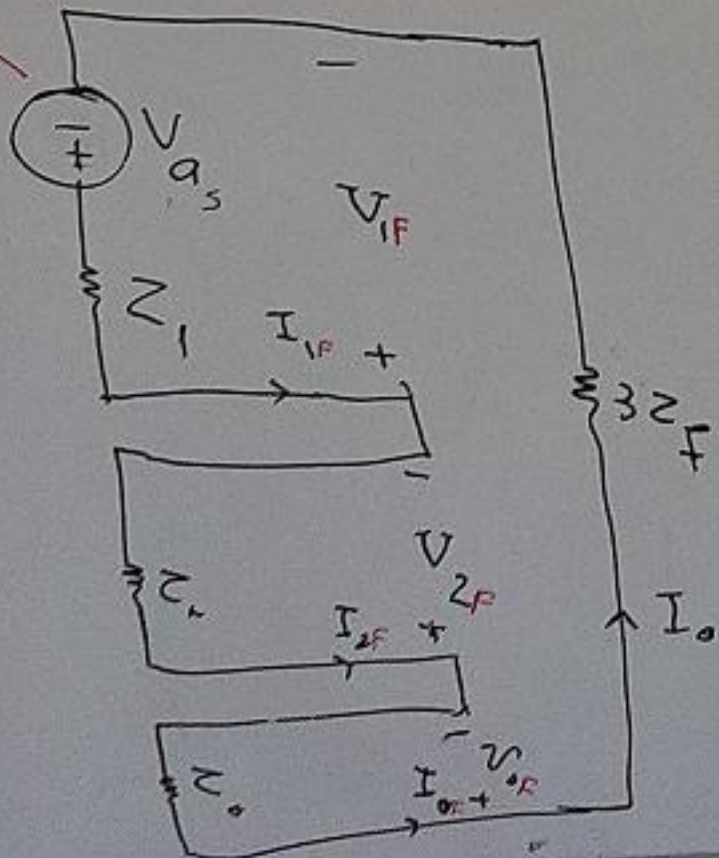 −
− +
V as
V1F
Z1
I1F +
3ZF
−
V2F
Z2
I2F +
I0
−
V0F
Z0
I0F +